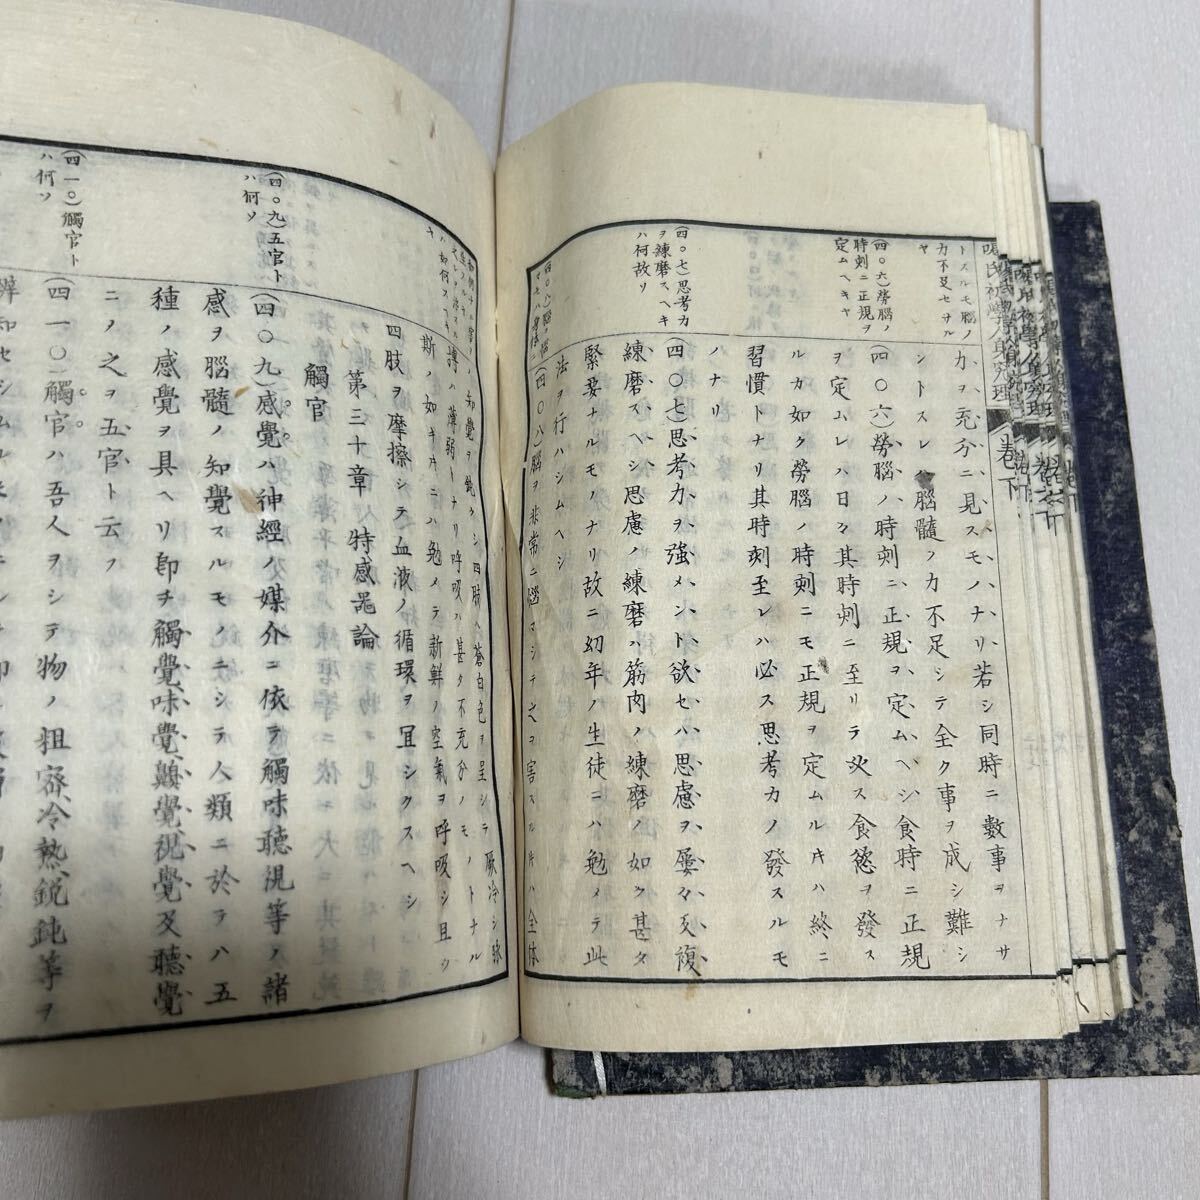 トスルモ腦ノ
力不足セサル
ヤ
(四〇六)勞腦ノ
時刻ニ正規ヲ
定ムヘキヤ
(四〇七)思考力
ヲ練磨スヘキ
ハ何故ソ
力ヲ充分ニ見スモノナリ若シ同時ニ數事ヲナサ
ントスレ腦髓ノ力不足シテ全ク事ヲ成シ難シ
(四〇六)勞腦ノ時刻ニ正規ヲ定ムヘシ食時ニ正規
ヲ定ムレハ日々其時刻ニ至リテ必ス食慾ヲ發ス
ルカ如ク勞腦ノ時刻ニモ正規ヲ定ムルキハ終ニ
習慣トナリ其時刻至レハ必ス思考力ノ發スルモ
ノナリ
(四〇七)思考力ヲ強メント欲セハ思慮ヲ屡々反複
練磨スヘシ思慮ノ練磨ハ筋肉ノ練磨ノ如ク甚タ
緊要ナルモノナリ故ニ幼年ノ生徒ニハ勉メテ此
法ヲ行ハシムヘシ
(四〇八)腦ヲ非常ニ惱マシテ之ヲ害スルキハ全体
ノ知覺ヲ鈍クシ四肢ハ蒼白色ヲ呈シテ厥冷シ脉
搏ハ薄弱トナリ呼吸ハ甚タ不充分ノモノトナル
斯ノ如キキニハ勉メテ新鮮ノ空氣ヲ呼吸シ且ツ
四肢ヲ摩擦シテ血液ノ循環ヲ冝シクスヘシ
第三十章 特感噐論
觸官
(四〇九)五官ト
ハ何ソ
(四〇九)感覺ハ神經ノ媒介ニ依テ觸味聽視等ノ諸
感ヲ腦髓ノ知覺スルモノニシテ人類ニ於テハ五
種ノ感覺ヲ具ヘリ即チ觸覺味覺齅覺視覺及聽覺
ニノ之ヲ五官ト云フ
(四一〇)觸官ト
ハ何ソ
(四一〇)觸官ハ吾人ヲシテ物ノ粗密冷熱銳鈍等ヲ
辨知セシムル